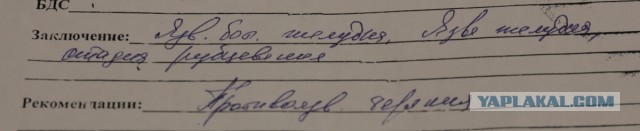 БДС
Заключение: Язв. бол. желудка, Язва желудка,
стадия рубцевания
Рекомендации: Противоязв. терапия
YAPLAKAL.COM